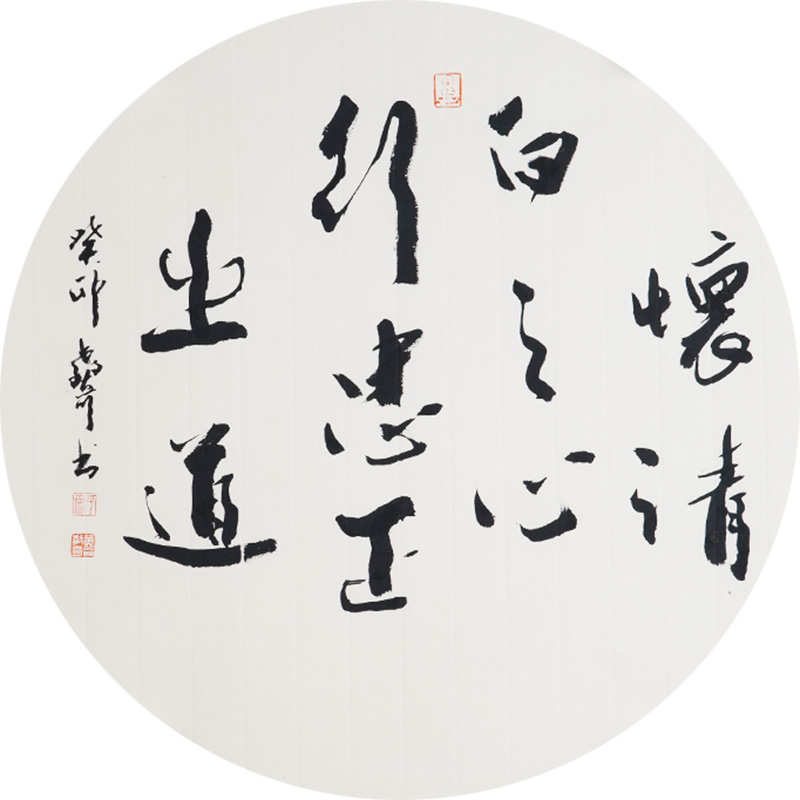 懷清
白之心
行忠正
之道
癸卯 書